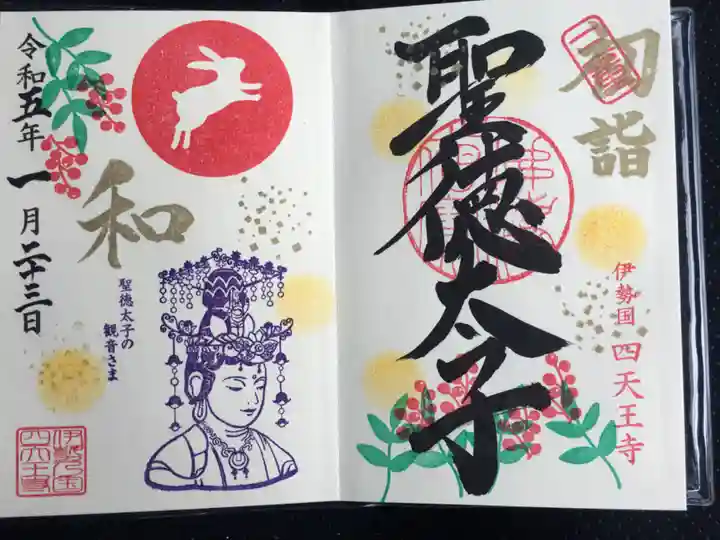 初詣
聖徳太子
伊勢国 四天王寺
和
聖徳太子の
観音さま
令和五年一月二十三日